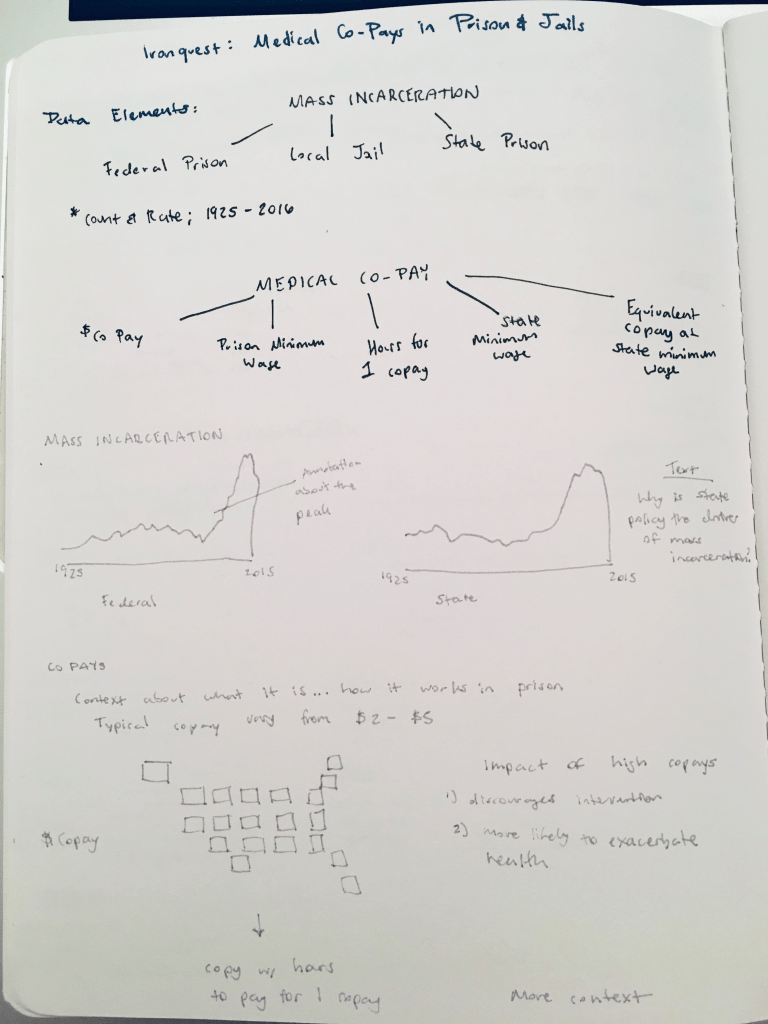 Ironquest: Medical Co-Pays in Prison & Jails
Data Elements:
MASS INCARCERATION
Federal Prison
Local Jail
State Prison
* Count & Rate; 1925 - 2016
MEDICAL CO-PAY
$ Co Pay
Prison Minimum
Wage
Hours for
1 copay
State
Minimum
wage
Equivalent
copay at
state minimum
wage
MASS INCARCERATION
Annotation
about the
peak
1925
2015
Federal
1925
2015
State
Text
Why is state
policy the driver
of mass
incarceration?
CO PAYS
Context about what it is... how it works in prison
Typical copay vary from $2 - $5
$ Copay
impact of high copays
1) discourages intervention
2) more likely to exacerbate
health
copy w/ hours
to pay for 1 copay
More context